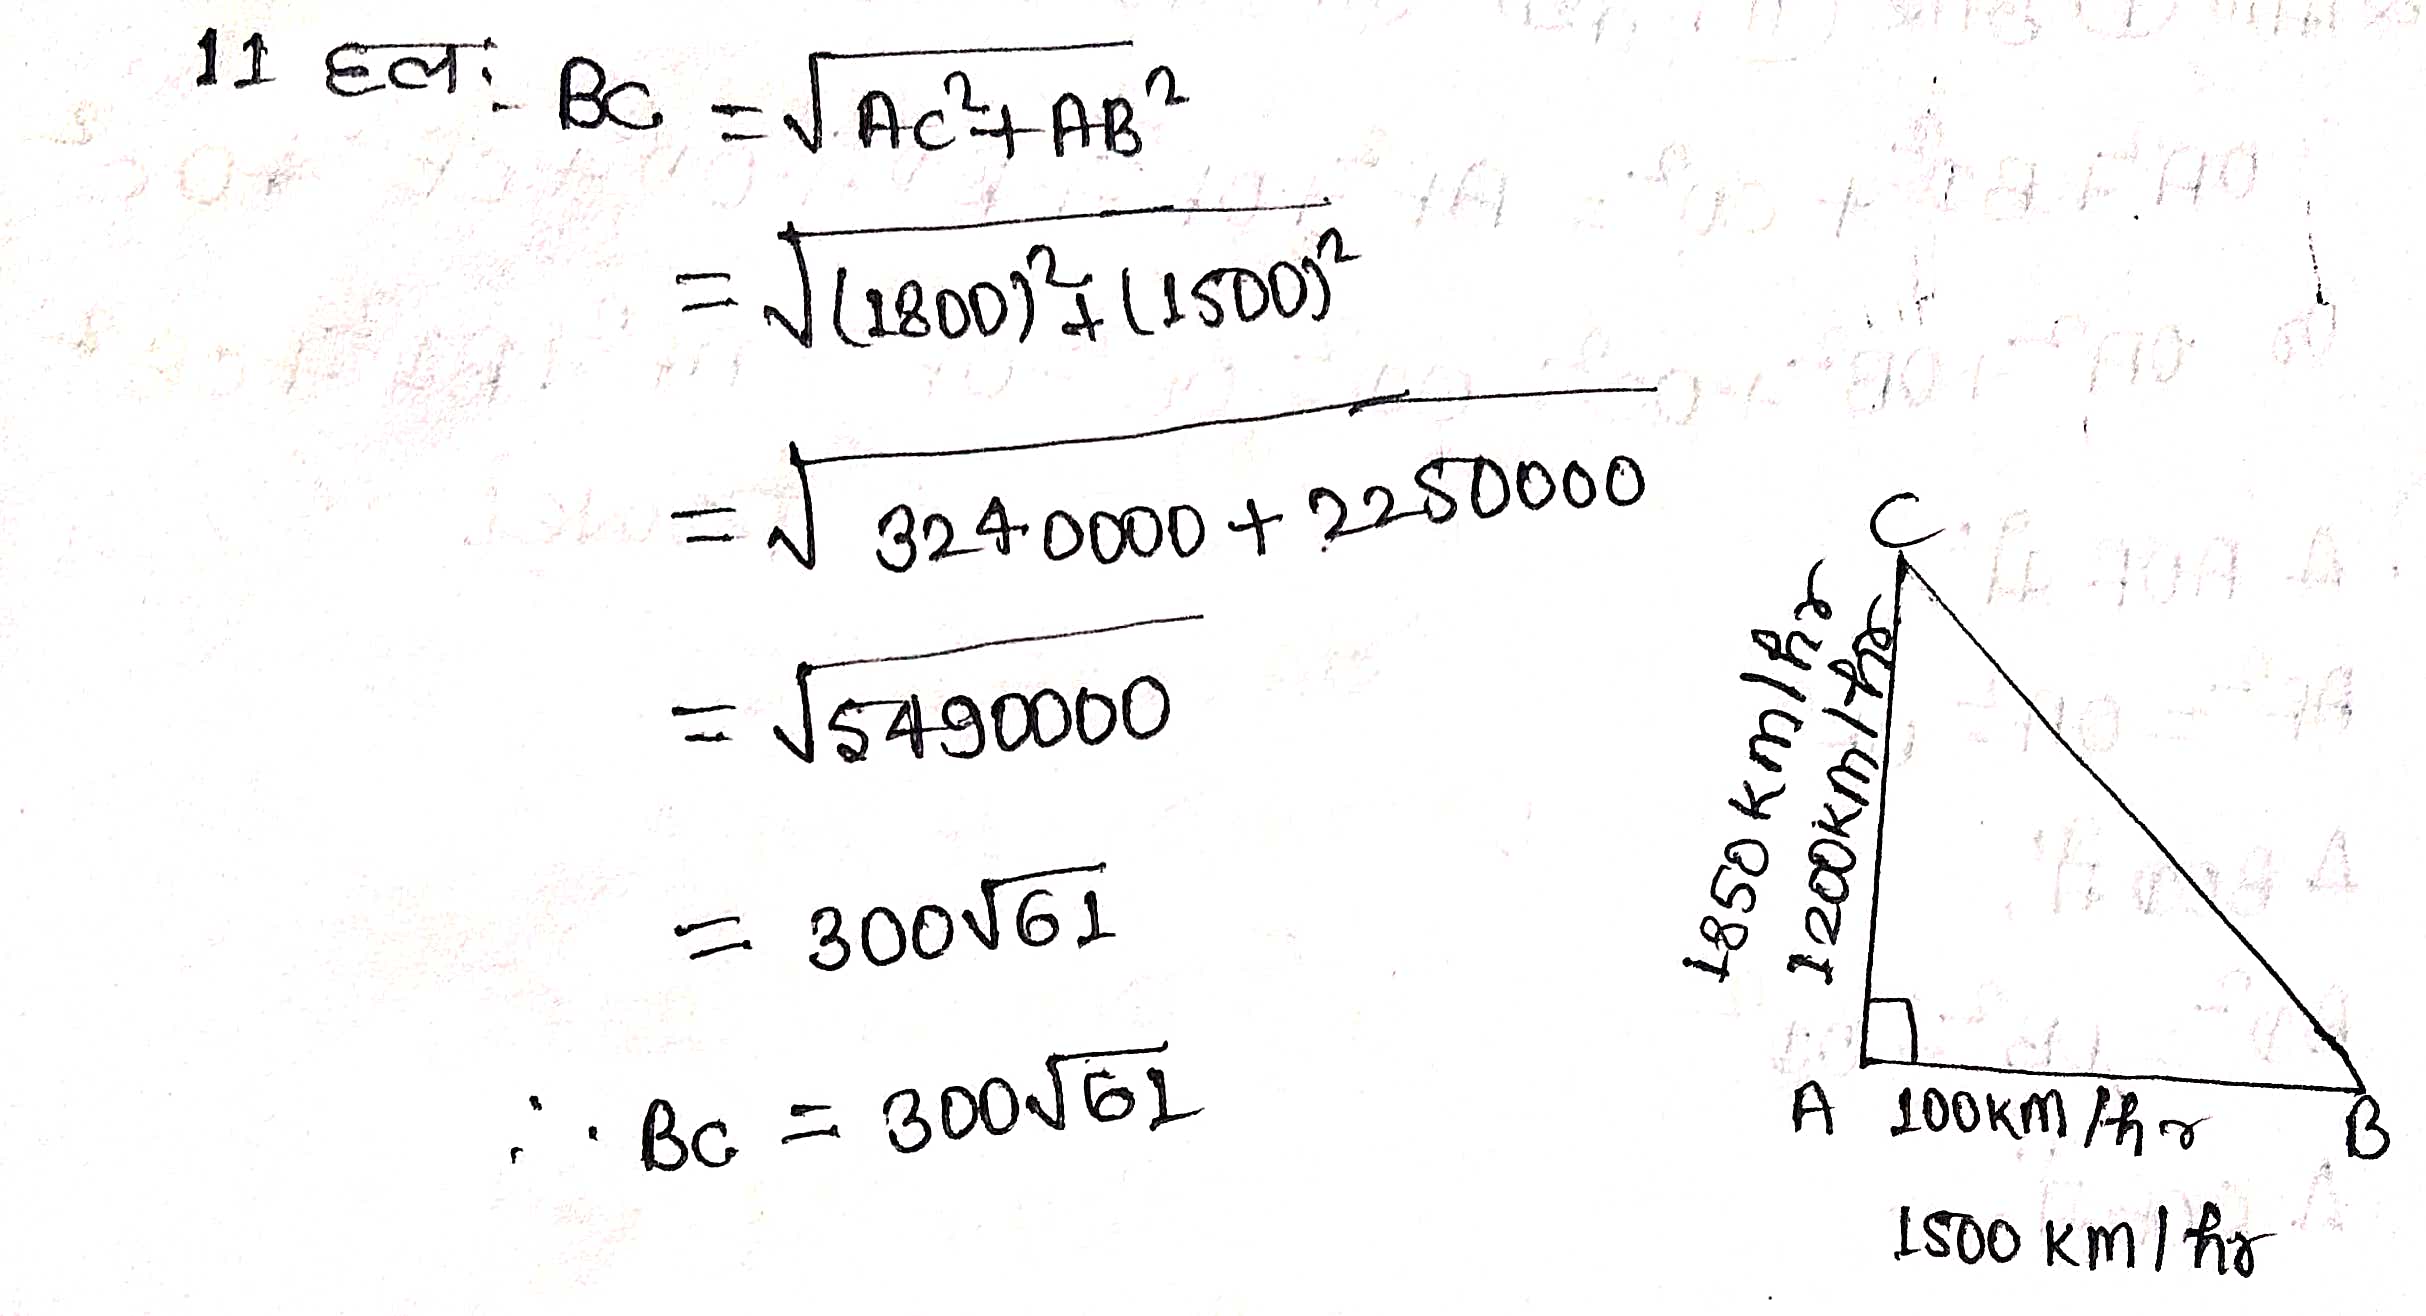 11 हल:- BC = √AC²+AB²
= √(1800)²+(1500)²
= √3240000+2250000
= √5490000
= 300√61
∴ BC = 300√61
C
1850 km/hr
1200km/hr
A 100km/hr B
1500 km/hr